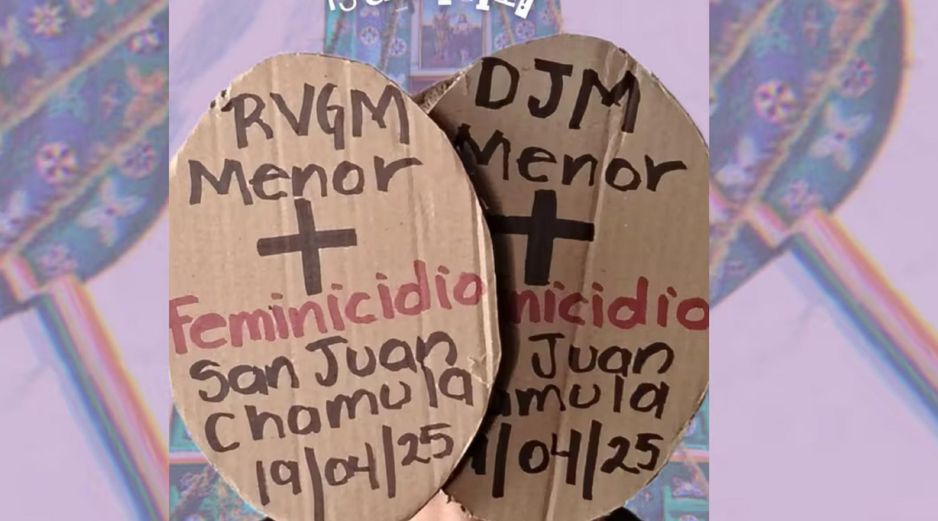 RVGM
Menor
Feminicidio
San Juan
Chamula
19/04/25
DJM
Menor
nicidio
Juan
amula
/04/25